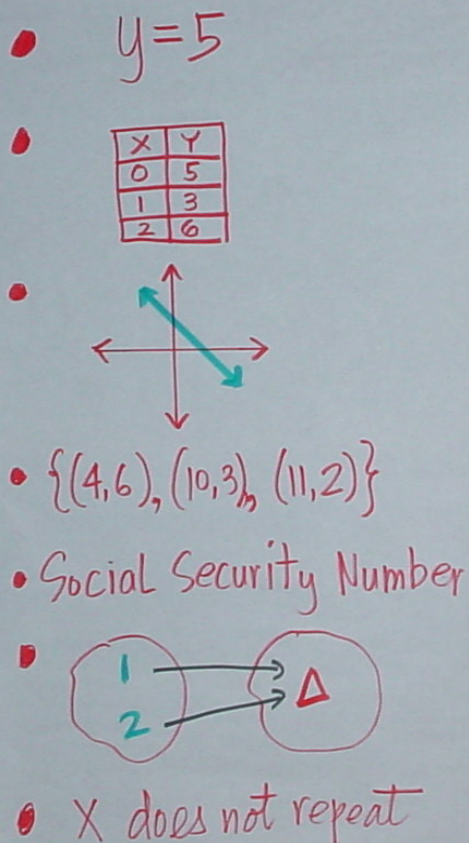 y=5
X Y
0 5
1 3
2 6
{(4,6), (10,3), (11,2)}
Social Security Number
1
Δ
2
X does not repeat